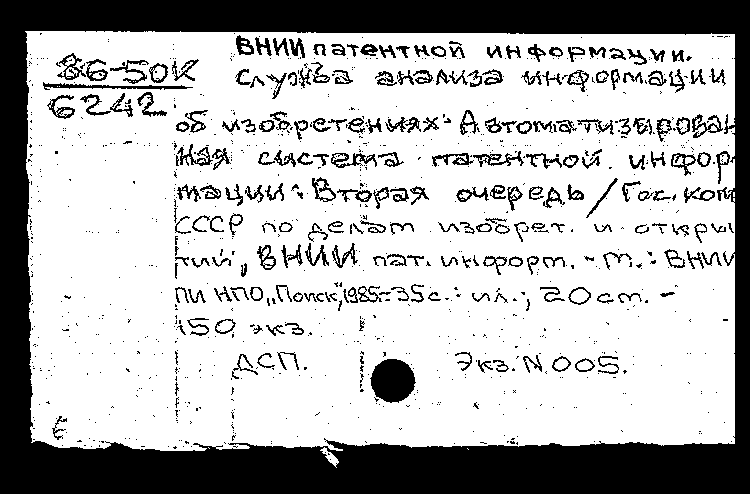 86-50К
6242
ВНИИ патентной информации.
Служба анализа информации
об изобретениях: Автоматизирован
ная система патентной инфор-
мации: Вторая очередь / Гос. ком
СССР по делам изобрет. и откры
тий, ВНИИ пат. информ. - М.: ВНИИ
ПИ НПО „Поиск”, 1985.-35с.: ил.; 20 см. -
150 экз.
ДСП. Экз. N 005.